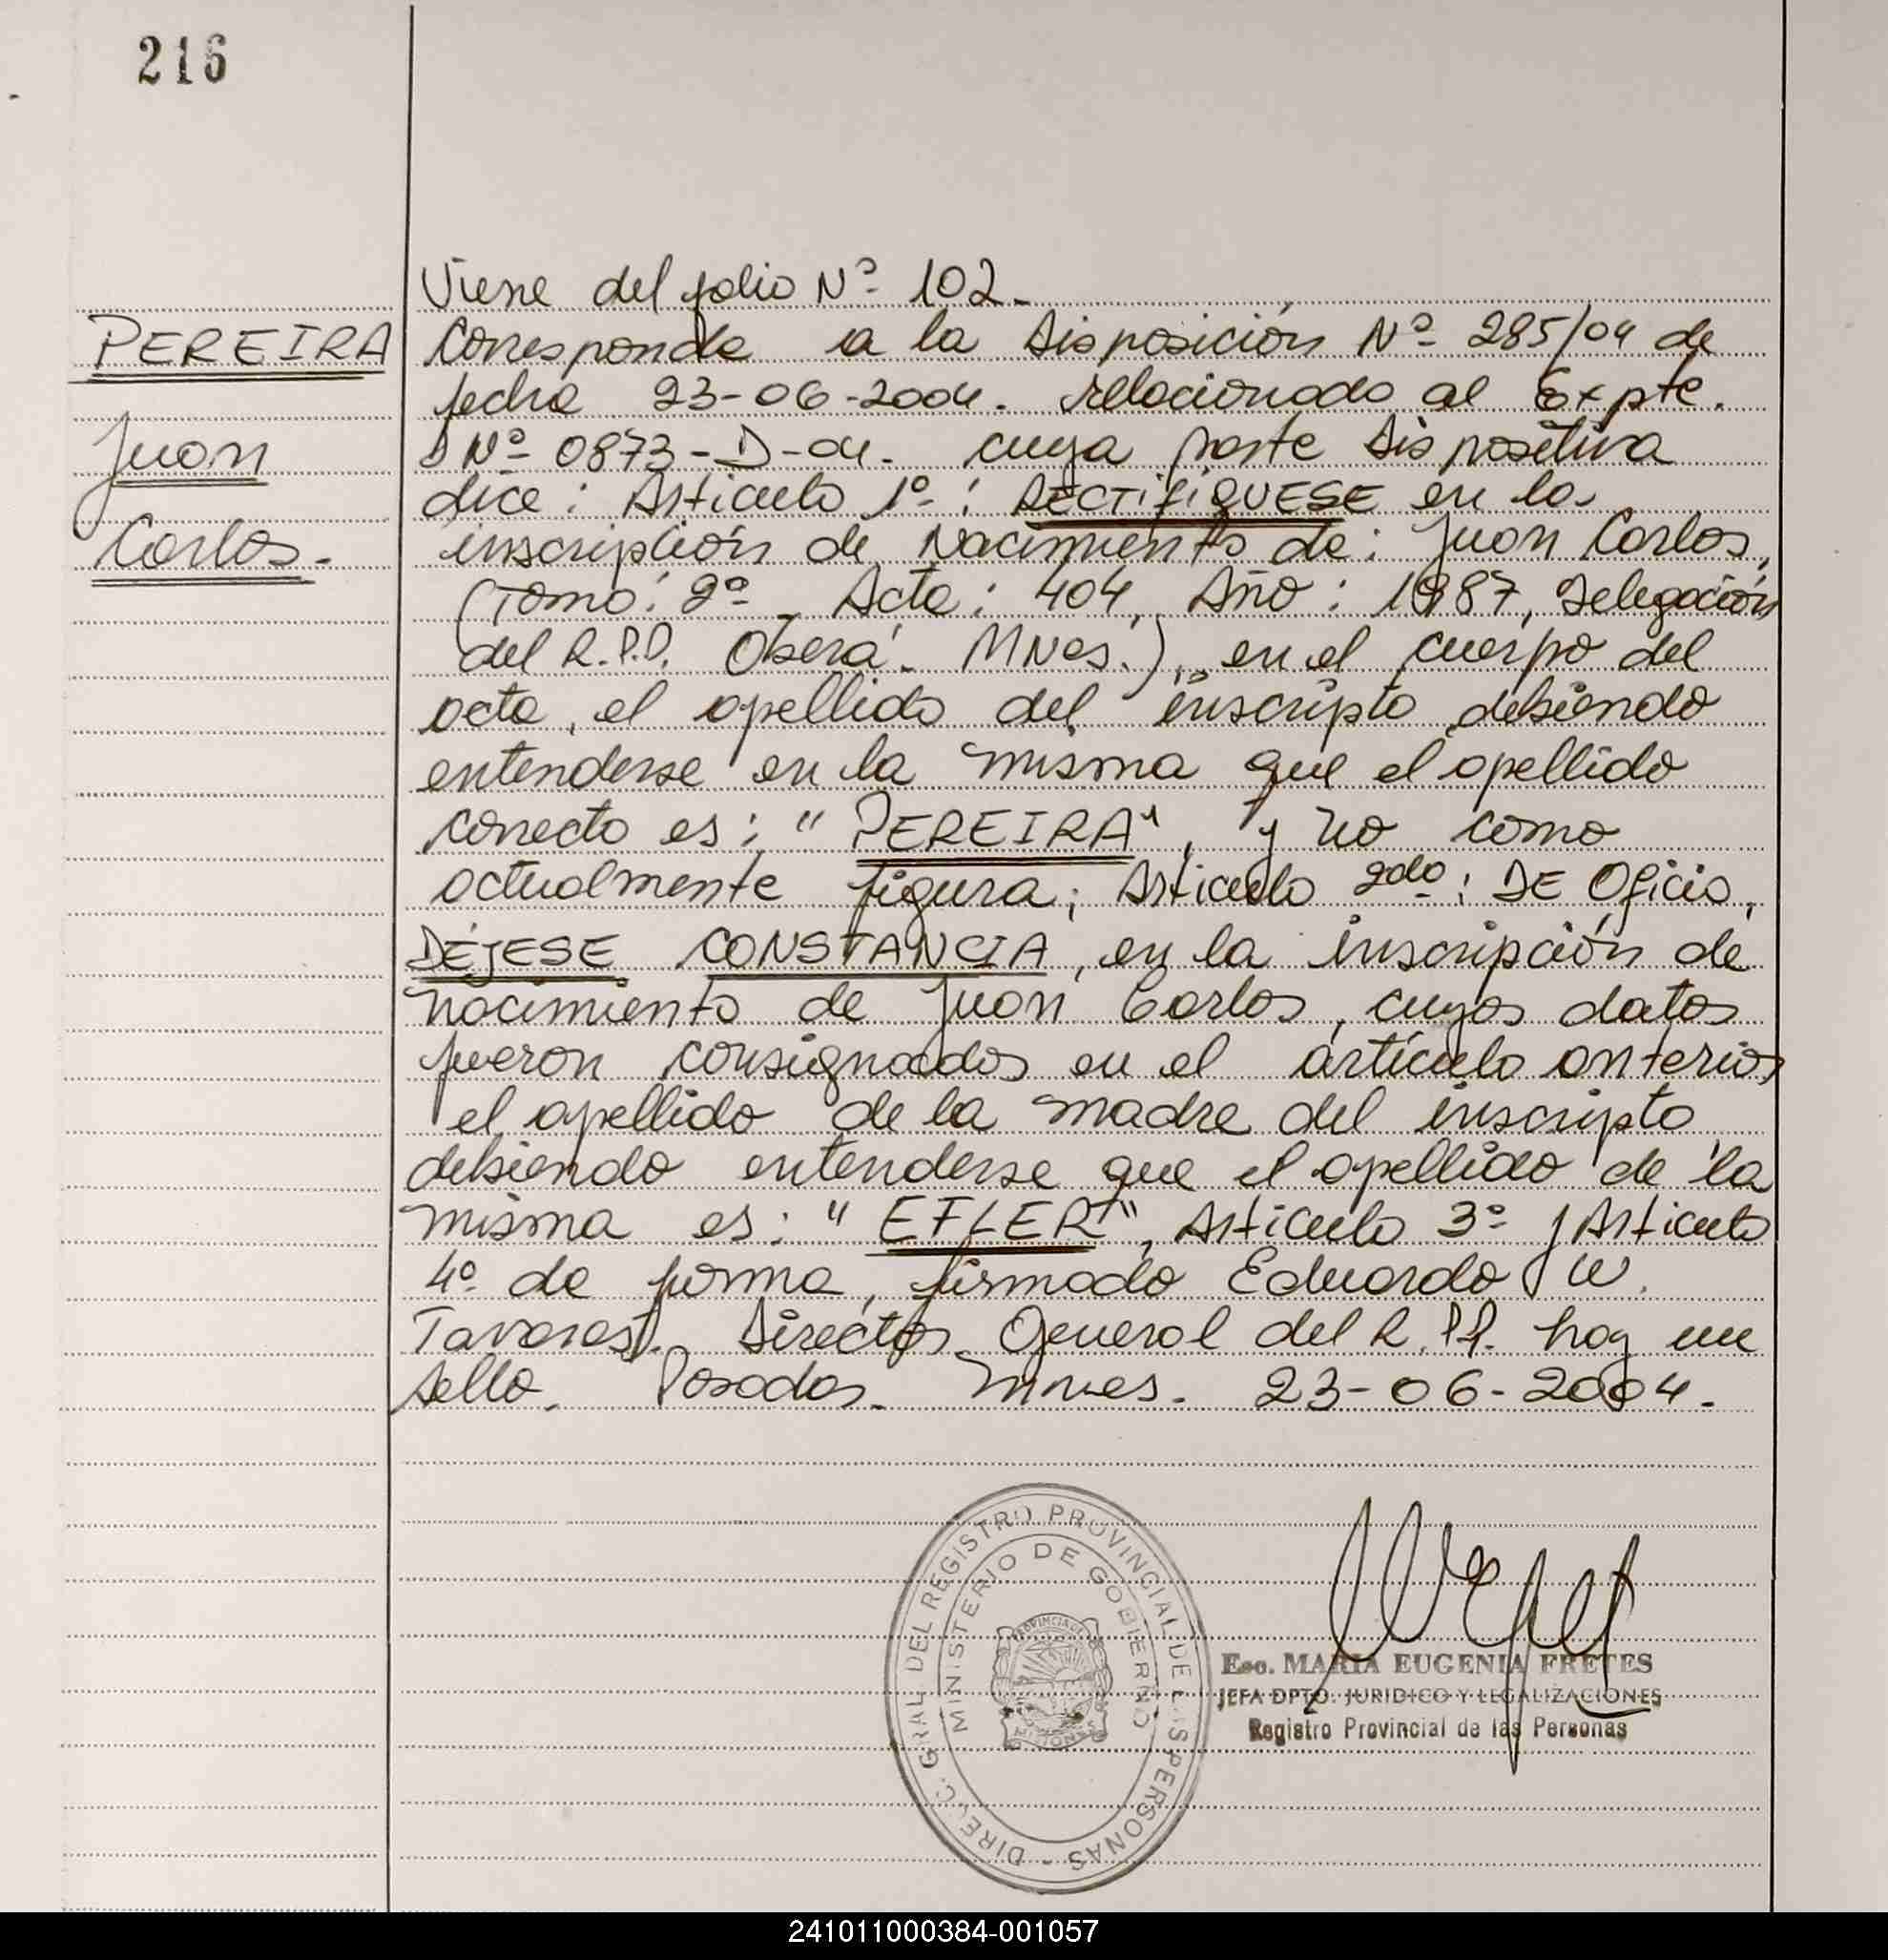 216
Viene del folio Nº 102.
PEREIRA
Juan
Carlos.
Corresponde a la Disposición Nº 285/04 de
fecha 23-06-2004. relacionado al Expte.
Nº 0873-D-04. cuya parte Dispositiva
dice: Artículo 1º: RECTIFÍQUESE en la
inscripción de Nacimiento de: Juan Carlos,
(Tomo: 2º - Acta: 404, Año: 1987, Delegación
del R.P.P. Oberá. MNes.), en el cuerpo del
acta, el apellido del inscripto debiendo
entenderse en la misma que el apellido
correcto es: "PEREIRA", y no como
actualmente figura; Artículo 2do: DE Oficio,
DÉJESE CONSTANCIA, en la inscripción de
nacimiento de Juan Carlos, cuyos datos
fueron consignados en el artículo anterior
el apellido de la madre del inscripto
debiendo entenderse que el apellido de la
misma es: "EFLER", Artículo 3º y Artículo
4º de forma, firmado Eduardo W.
Director General del R.P.P. hay un
sello. Posadas. Mnes. 23-06-2004.
DIREC. GRAL DEL REGISTRO PROVINCIAL DE LAS PERSONAS -
MINISTERIO DE GOBIERNO
PROVINCIA DE
MISIONES
Esc. MARIA EUGENIA FRETES
JEFA DPTO. JURIDICO Y LEGALIZACIONES
Registro Provincial de las Personas
241011000384-001057